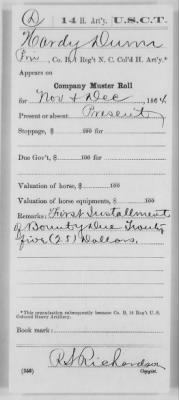 D 14 H. Art'y. U.S.C.T.
Hardy Dunn
Priv, Co. B, 1 Reg't N. C. Col'd H. Art'y.*
Appears on
Company Muster Roll
for Nov & Dec, 1864.
Present or absent Present
Stoppage, $ 100 for
Due Gov't, $ 100 for
Valuation of horse, $ 100
Valuation of horse equipments, $ 100
Remarks: First Installment
of Bounty due Twenty
five (25) Dollars.
*This organization subsequently became Co. B, 14 Reg't U. S.
Colored Heavy Artillery.
Book mark:
R S Richardson
(358) Copyist.